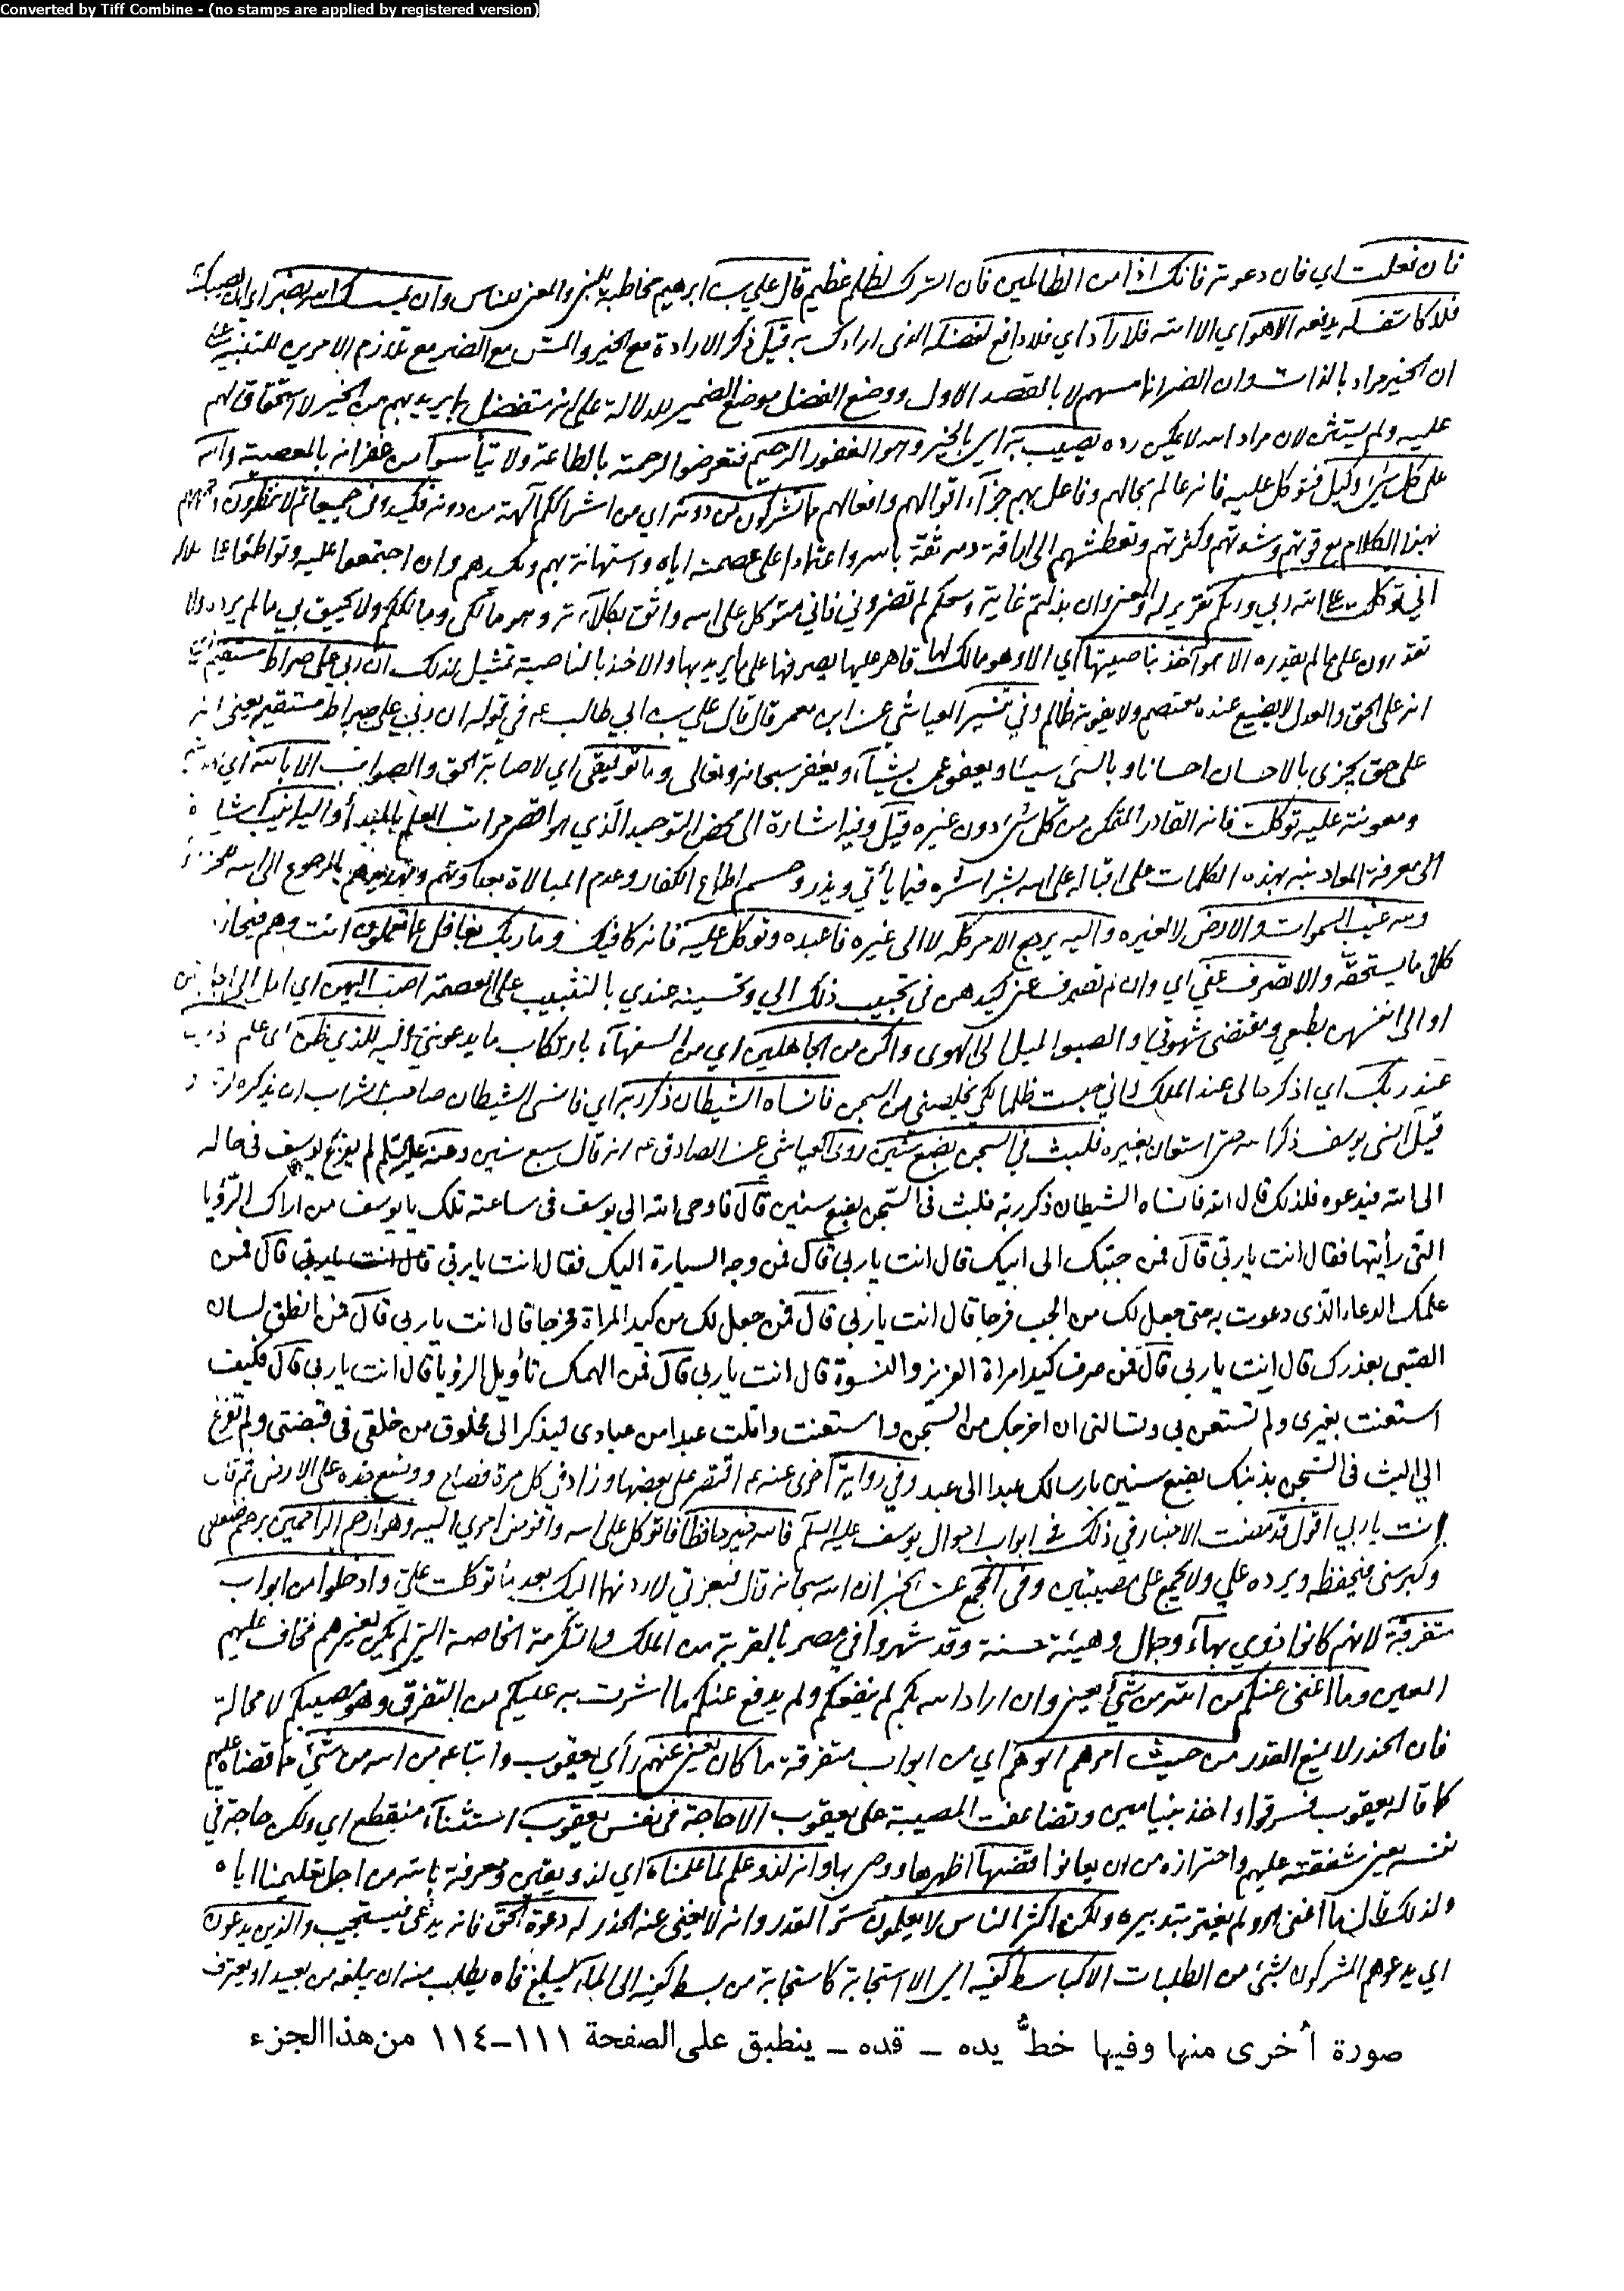 Converted by Tiff Combine - (no stamps are applied by registered version)
فان فعلت اي فان دعوته فانك اذا من الظالمين فان الشرك لظلم عظيم قال علي بن ابرهيم مخاطبة للنبي والمعني للناس وان يمسسك الله بضر اي ان يصبك
فلا كاشف له يدفعه الا هو اي الا الله فلا راد اي فلا دافع لفضله الذى ارادك به قيل ذكر الارادة مع الخير والمس مع الضر مع تلازم الامرين للتنبيه على
ان الخير مراد بالذات وان الضر انما مسهم لا بالقصد الاول ووضع الفضل موضع الضمير للدلالة على انه متفضل بما يريد بهم من الخير لا استحقاق لهم
عليه ولم يستثن لان مراد الله لا يمكن رده يصيب به اي بالخير وهو الغفور الرحيم فتعرضوا لرحمته بالطاعة ولا تيأسوا من غفرانه بالمعصية والله
على كل شيء وكيل فتوكل عليه فانه عالم بحالهم وفاعل بهم جزآء اقوالهم وافعالهم مما تشركون من دونه اي من اشراككم آلهة من دونه فكيدوني جميعا ثم لا تنظرون
بهذا الكلام مع قوتهم وشدتهم وكثرتهم وتعطشهم الى اراقة دمه ثقة بالله واعتمادا على عصمته اياه واستهانة بهم وبكيدهم وان اجتمعوا عليه وتواطئوا على
اني توكلت على الله ربي وربكم تقرير له والمعنى وان بذلتم غاية وسعكم لم تضروني فاني متوكل على الله واثق بكلآءته وهو مالكي ومالككم ولا يحيق بي ما لم يرده ولا
تقدرون على ما لم يقدره الا هو آخذ بناصيتها اي الا وهو مالك لها قاهر عليها يصرفها على ما يريد بها والاخذ بالناصية تمثيل لذلك ان ربي على صراط مستقيم اي
انه على الحق والعدل لا يضيع عنده معتصم ولا يفوته ظالم وفي تفسير العياشي عن ابن معمر قال قال علي بن ابي طالب ع في قوله ان ربي على صراط مستقيم يعني انه
على حق يجزى بالاحسان احسانا وبالسيئ سيئا ويعفو عمن يشآء ويغفر سبحانه وتعالى وما توفيقي اي لاصابة الحق والصواب الا بالله اي
ومعونته عليه توكلت فانه القادر المتمكن من كل شيء دون غيره قيل وفيه اشارة الى محض التوحيد الذي هو اقصى مراتب العلم بالمبدأ واليه انيب
الى معرفة المعاد نبه بهذه الكلمات على اقباله على الله بشراشره فيما يأتي ويذر وحسم اطماع الكفار وعدم المبالاة بعداوتهم وتهديدهم بالرجوع الى الله
ولله غيب السموات والارض لا لغيره واليه يرجع الامر كله لا الى غيره فاعبده وتوكل عليه فانه كافيك وما ربك بغافل عما تعملون انت وهم فيجاز
كلا ما يستحقه والا تصرف عني اي وان لم تصرف عني كيدهن في تحبيب ذلك الي وتحسينه عندي بالتثبيت على العصمة اصب اليهن اي امل الى
او الى انفسهن بطبعي ومقتضى شهوتي والصبو الميل الى الهوى واكن من الجاهلين اي من السفهآء بارتكاب ما يدعونني اليه للذي ظن اي علم
عند ربك اي اذكر حالى عند الملك واني حبست ظلما لكي يخلصني من السجن فانساه الشيطان ذكر ربه اي فانسى الشيطان صاحب الشراب ان يذكره
قيل انسى يوسف ذكر الله حتى استعان بغيره فلبث في السجن بضع سنين روى العياشي عن الصادق ع انه قال سبع سنين وعنه عليه السلم لم يفزع يوسف فى حاله
الى الله فيدعوه فلذلك قال الله فانساه الشيطان ذكر ربه فلبث فى السجن بضع سنين قال فاوحى الله الى يوسف فى ساعته تلك يا يوسف من اراك الرؤيا
التى رأيتها فقال انت يا ربي قال فمن حببك الى ابيك قال انت يا ربي قال فمن وجه السيارة اليك فقال انت يا ربي قال انت يا ربي قال فمن
علمك الدعاء الذى دعوت به حتى جعل لك من الجب فرجا قال انت يا ربي قال فمن جعل لك من كيد المراة مخرجا قال انت يا ربي قال فمن انطق لسان
الصبى بعذرك قال انت يا ربي قال فمن صرف كيد امراة العزيز والنسوة قال انت يا ربي قال فمن الهمك تأويل الرؤيا قال انت يا ربي قال فكيف
استعنت بغيرى ولم تستعن بي وتسالنى ان اخرجك من السجن واستعنت واملت عبدا من عبادى ليذكرك الى مخلوق من خلقي فى قبضتى ولم تفزع
الي البث فى السجن بذنبك بضع سنين بارسالك عبدا الى عبد وفي رواية اخرى عنه ع اقتصر على بعضها وزاد في كل مرة فصاح ووضع خده على الارض ثم قال
انت يا ربي اقول قد مضت الاخبار في ذلك في ابواب احوال يوسف عليه السلم فالله خير حافظا فاتوكل على الله وافوض امري اليه وهو ارحم الراحمين يرحم ضعفي
وكبر سني فيحفظه ويرده علي ولا يجمع على مصيبتين وفى المجمع عن الخبر ان الله سبحانه قال فبعزتي لاردنهما اليك بعد ما توكلت علي وادخلوا من ابواب
متفرقة لانهم كانوا ذوي بهآء وجمال وهيئة حسنة وقد شهروا في مصر بالقربة من الملك والتكرمة الخاصة التي لم يكن لغيرهم فخاف عليهم
العين وما اغنى عنكم من الله من شيء يعني وان اراد الله بكم لم ينفعكم ولم يدفع عنكم ما اشرت به عليكم من التفرق وهو مصيبكم لا محالة
فان الحذر لا يمنع القدر من حيث امرهم ابوهم اي من ابواب متفرقة ما كان يغني عنهم رأي يعقوب واتباعه من الله من شيء مما قضاه عليهم
كما قاله يعقوب فسرقوا واخذ بنيامين وتضاعفت المصيبة على يعقوب الا حاجة فى نفس يعقوب استثنآء منقطع اي ولكن حاجة في
نفسه يعني شفقته عليهم واحترازه من ان يعانوا قضيها اظهرها ووصى بها وانه لذو علم لما علمناه اي لذو يقين ومعرفة بالله من اجل تعليمنا اياه
ولذلك قال ما اغنى ولم يغتر بتدبيره ولكن اكثر الناس لا يعلمون سر القدر وانه لا يغنى عنه الحذر له دعوة الحق فانه يدعى فيستجيب والذين يدعون
اي يدعوهم المشركون بشئ من الطلبات الا كباسط كفيه اي الا استجابة كاستجابة من بسط كفيه الى المآء ليبلغ فاه يطلب منه ان يبلغه من بعيد او يغترف
صورة أُخرى منها وفيها خطُّ يده ـ قده ـ ينطبق على الصفحة ١١١-١١٤ من هذا الجزء